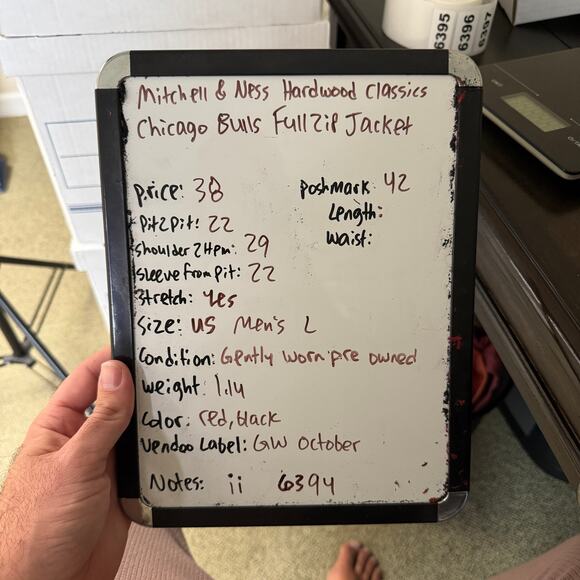 Mitchell & Ness Hardwood Classics
Chicago Bulls Full Zip Jacket
price: 38
Poshmark: 42
Length:
Pit2Pit: 22
waist:
shoulder2Hem: 29
sleeve from pit: 22
stretch: yes
Size: US Men's L
Condition: Gently worn pre owned
weight: 1.14
Color: red, black
Vendoo Label: GW October
Notes: ii 6394
6395
6396
6397